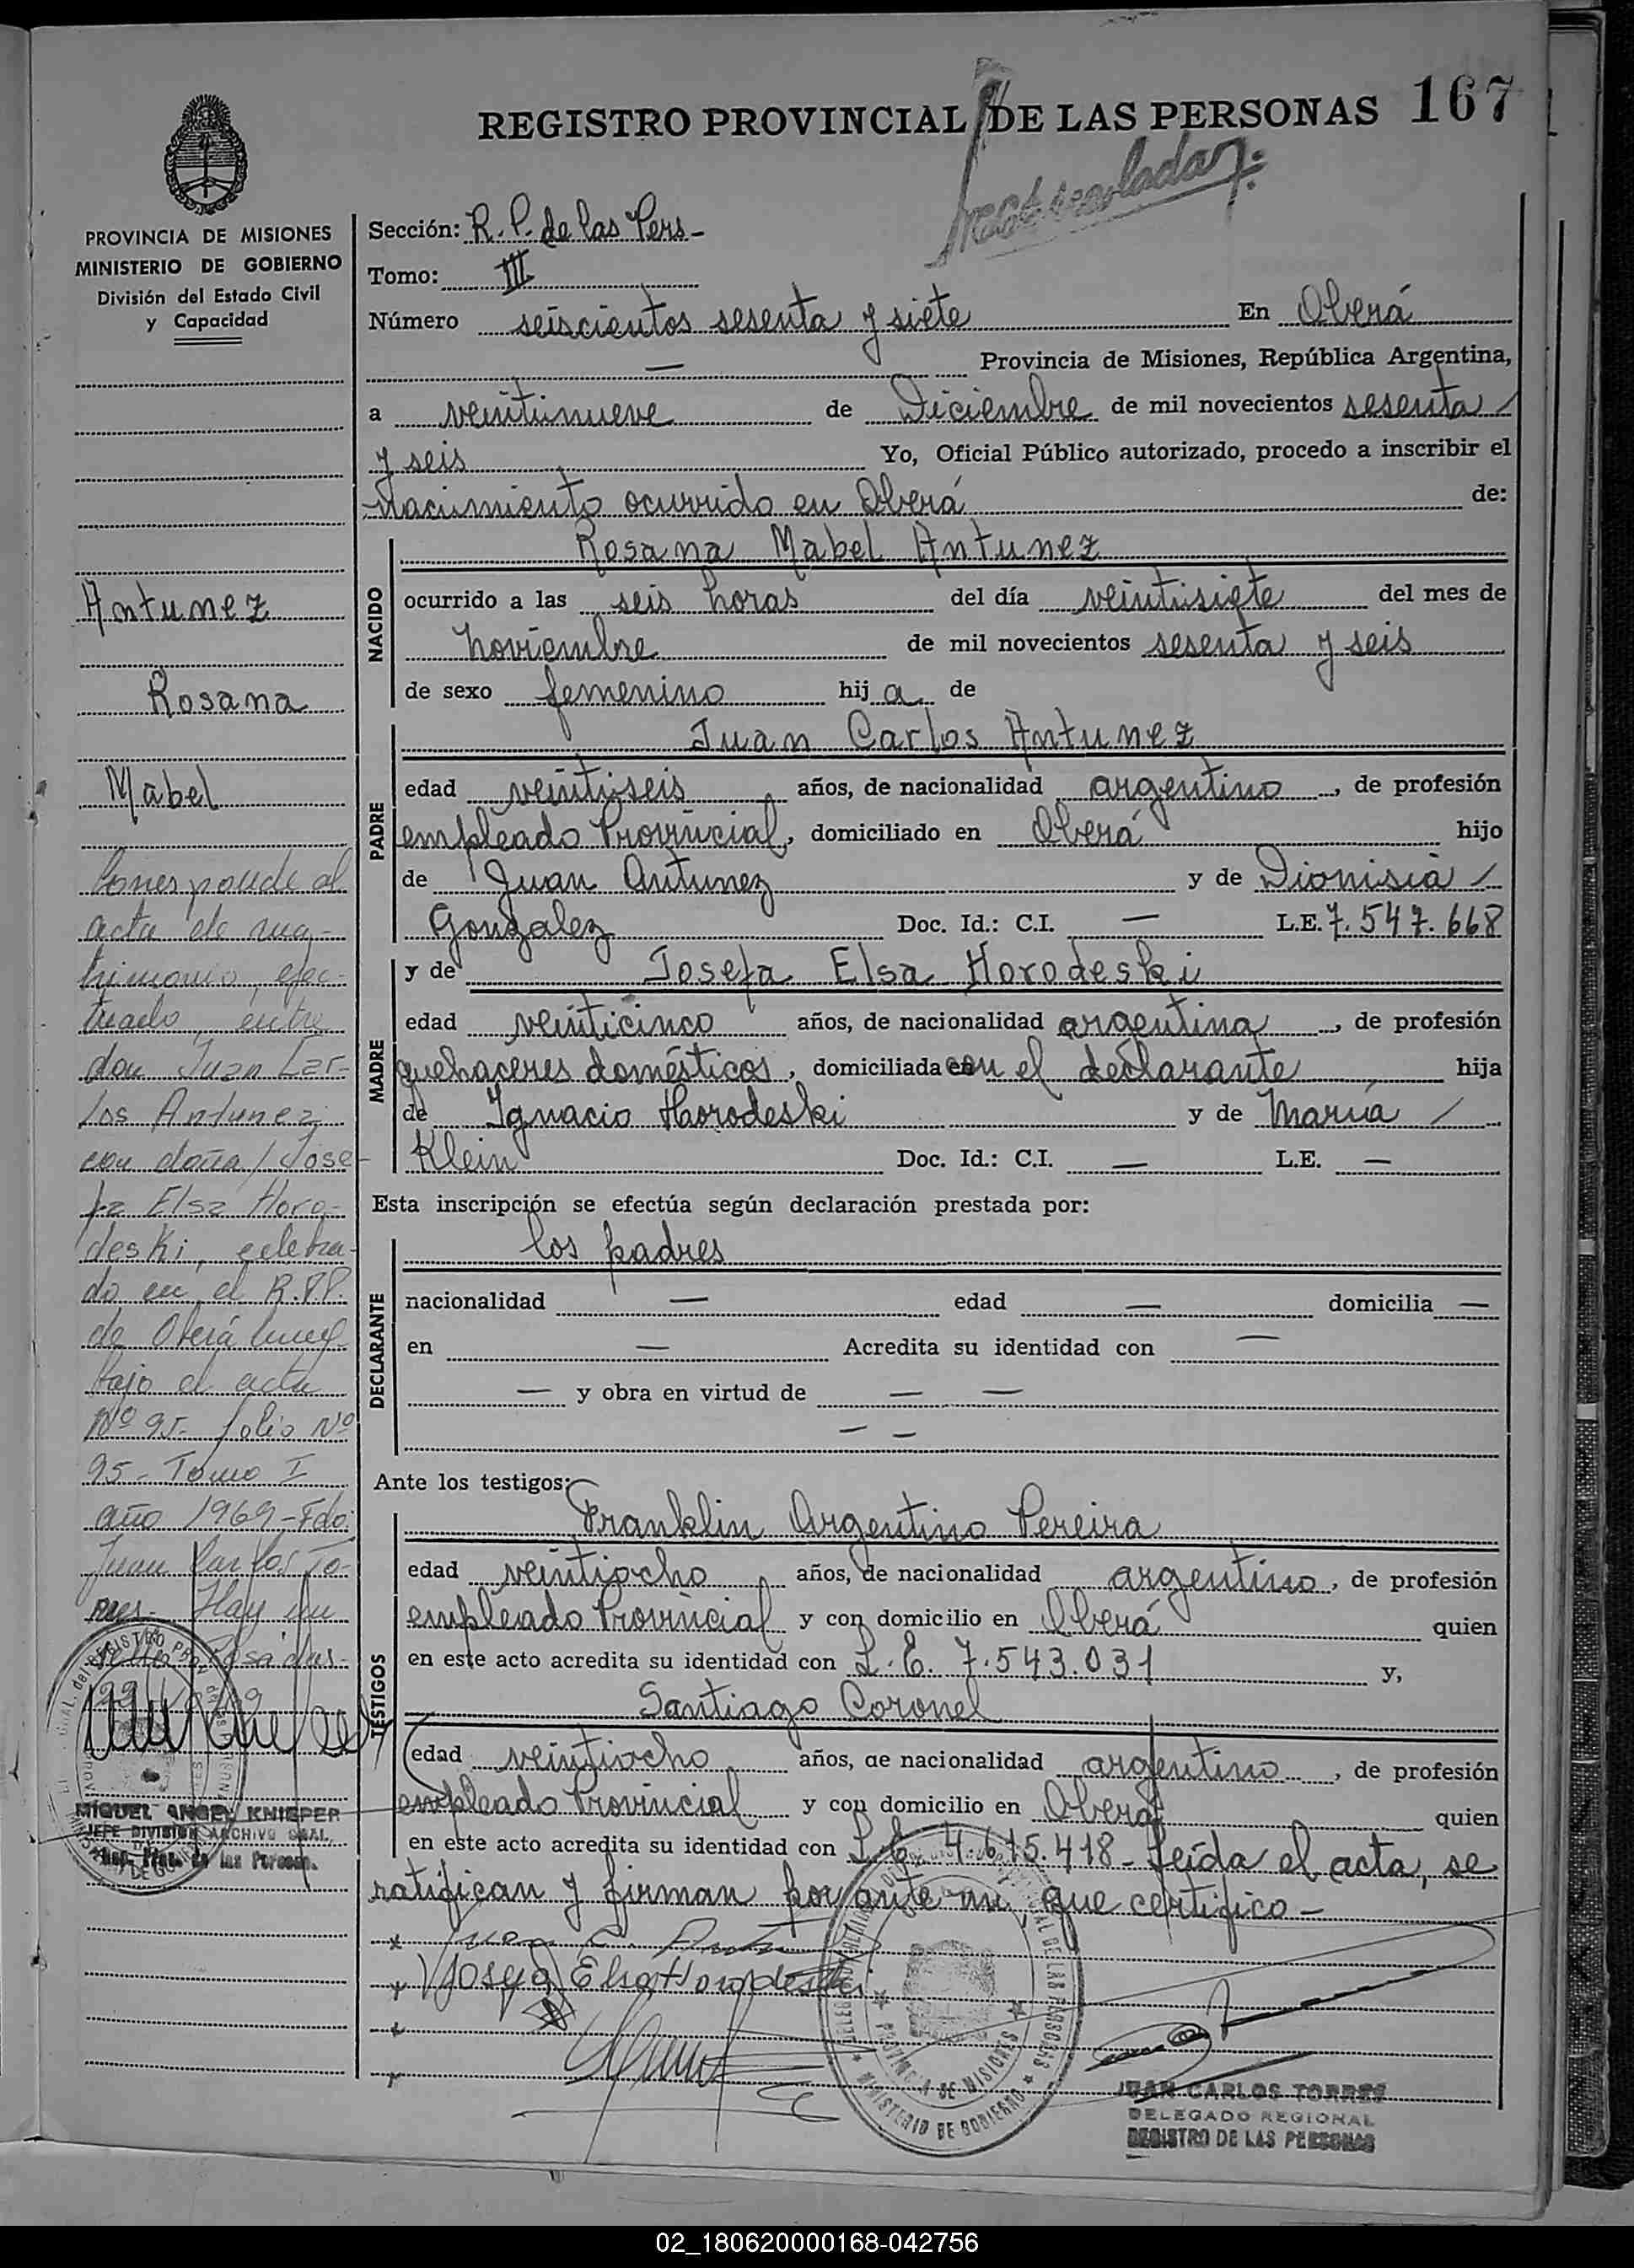 REGISTRO PROVINCIAL DE LAS PERSONAS 167
PROVINCIA DE MISIONES
MINISTERIO DE GOBIERNO
División del Estado Civil
y Capacidad
Antunez
Rosana
Mabel
Corresponde al
acta de ma-
trimonio, efec-
tuado, entre
don Juan Car-
los Antunez
con doña Jose-
fa Elsa Horo-
deski, celebra-
do en el R.P.P.
de Oberá
bajo el acta
Nº 95- folio Nº
95- Tomo I
año 1969-Fdo:
Juan Carlos To-
rres- Hay un
sello Posadas-
MIGUEL ANGEL KNIEPER
JEFE DIVISION ARCHIVO GRAL.
Rep. Prov. de las Personas.
Sección: R. P. de las Pers-
Tomo: III
Número seiscientos sesenta y siete En Oberá
— Provincia de Misiones, República Argentina,
a veintinueve de Diciembre de mil novecientos sesenta /
y seis Yo, Oficial Público autorizado, procedo a inscribir el
nacimiento ocurrido en Oberá de:
NACIDO
Rosana Mabel Antunez
ocurrido a las seis horas del día veintisiete del mes de
noviembre de mil novecientos sesenta y seis
de sexo femenino hij a de
PADRE
Juan Carlos Antunez
edad veintiseis años, de nacionalidad argentino, de profesión
empleado Provincial, domiciliado en Oberá hijo
de Juan Antunez y de Dionisia /
Gonzalez Doc. Id.: C.I. — L.E. 7.547.668
y de Josefa Elsa Horodeski
MADRE
edad veinticinco años, de nacionalidad argentina, de profesión
quehaceres domésticos, domiciliada con el declarante hija
de Ignacio Horodeski y de María /
Klein Doc. Id.: C.I. — L.E. —
Esta inscripción se efectúa según declaración prestada por:
DECLARANTE
los padres
nacionalidad — edad — domicilia —
en — Acredita su identidad con —
— y obra en virtud de — —
— —
Ante los testigos:
TESTIGOS
Franklin Argentino Pereira
edad veintiocho años, de nacionalidad argentino, de profesión
empleado Provincial y con domicilio en Oberá quien
en este acto acredita su identidad con L. E. 7.543.031 y,
Santiago Coronel
edad veintiocho años, de nacionalidad argentino, de profesión
empleado Provincial y con domicilio en Oberá quien
en este acto acredita su identidad con L. E. 4.615.418- Leída el acta, se
ratifican y firman por ante mi, que certifico-
Josefa Elsa Horodeski
PROVINCIA DE MISIONES
MINISTERIO DE GOBIERNO
JUAN CARLOS TORRES
DELEGADO REGIONAL
REGISTRO DE LAS PERSONAS
02_180620000168-042756